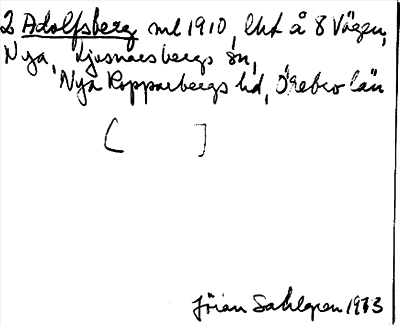 2 Adolfsberg ml 1910, lht å 8 Vägen,
Nya, Ljusnarsbergs sn,
Nya Kopparbergs hd, Örebro län
( ]
Jöran Sahlgren 1973